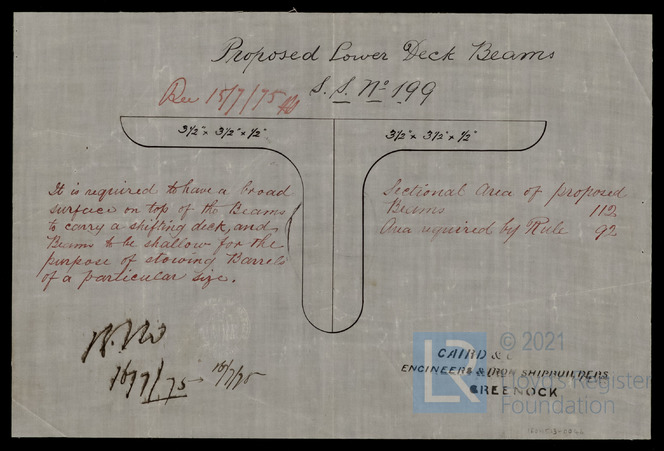 Proposed Lower Deck Beams
S.S. No 199
Rec 15/7/75
3½" x 3½" x ½"
3½" x 3½" x ½"
It is required to have a broad
surface on top of the Beams
to carry a shifting deck, and
Beams to be shallow for the
purpose of stowing Barrels
of a particular size.
Sectional Area of proposed
Beams 112
Area required by Rule 92
16/7/75
16/7/75
CAIRD & C
ENGINEERS & IRON SHIPBUILDERS
GREENOCK
LR
© 2021
Lloyd's Register
Foundation